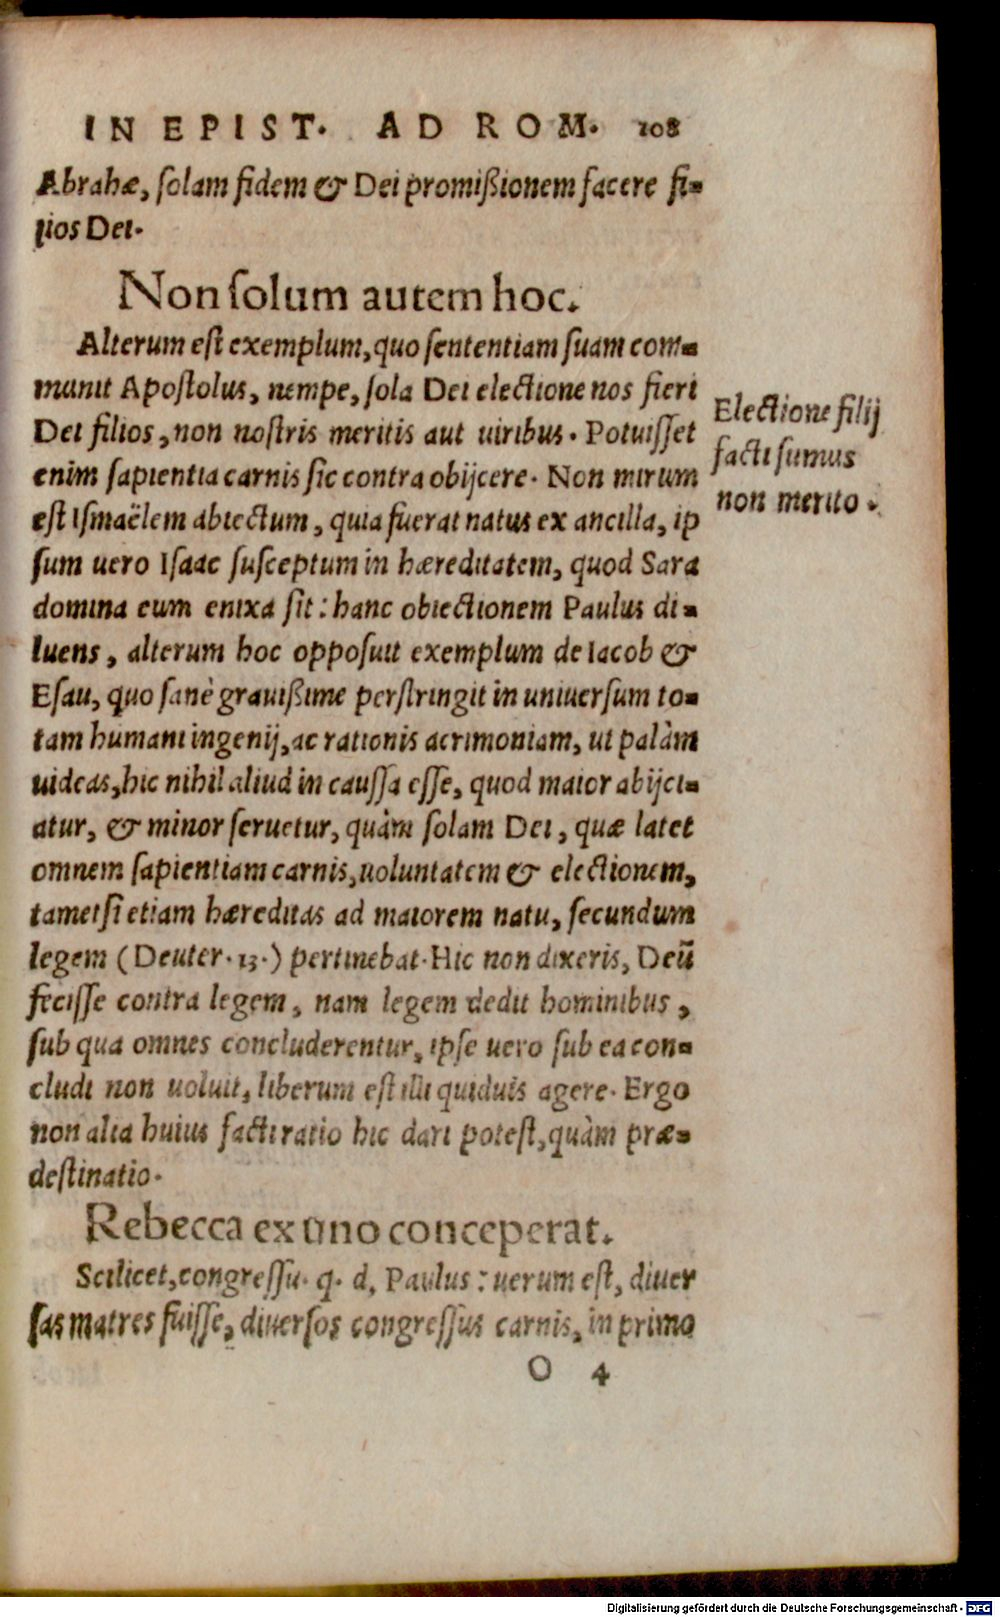 IN EPIST. AD ROM. 108
Abrahæ, solam fidem & Dei promißionem facere fi-
lios Dei.
Non solum autem hoc.
Alterum est exemplum, quo sententiam suam com-
munit Apostolus, nempe, sola Dei electione nos fieri
Dei filios, non nostris meritis aut uiribus. Potuisset
enim sapientia carnis sic contra obijcere. Non mirum
est Ismaëlem abiectum, quia fuerat natus ex ancilla, ip
sum uero Isaac susceptum in hæreditatem, quod Sara
domina eum enixa sit: hanc obiectionem Paulus di-
luens, alterum hoc opposuit exemplum de Iacob &
Esau, quo sanè grauißime perstringit in uniuersum to-
tam humani ingenij, ac rationis acrimoniam, ut palàm
uideas, hic nihil aliud in caussa esse, quod maior abijci-
atur, & minor seruetur, quàm solam Dei, quæ latet
omnem sapientiam carnis, uoluntatem & electionem,
tametsi etiam hæreditas ad maiorem natu, secundum
legem (Deuter. 13.) pertinebat. Hic non dixeris, Deū
fecisse contra legem, nam legem dedit hominibus,
sub qua omnes concluderentur, ipse uero sub ea con-
cludi non uoluit, liberum est illi quiduis agere. Ergo
non alia huius facti ratio hic dari potest, quàm præ-
destinatio.
Rebecca ex uno conceperat.
Scilicet, congressu. q. d. Paulus: uerum est, diuer
sas matres fuisse, diuersos congressus carnis, in primo
O 4
Electione filij
facti sumus
non merito.
Digitalisierung gefördert durch die Deutsche Forschungsgemeinschaft - DFG